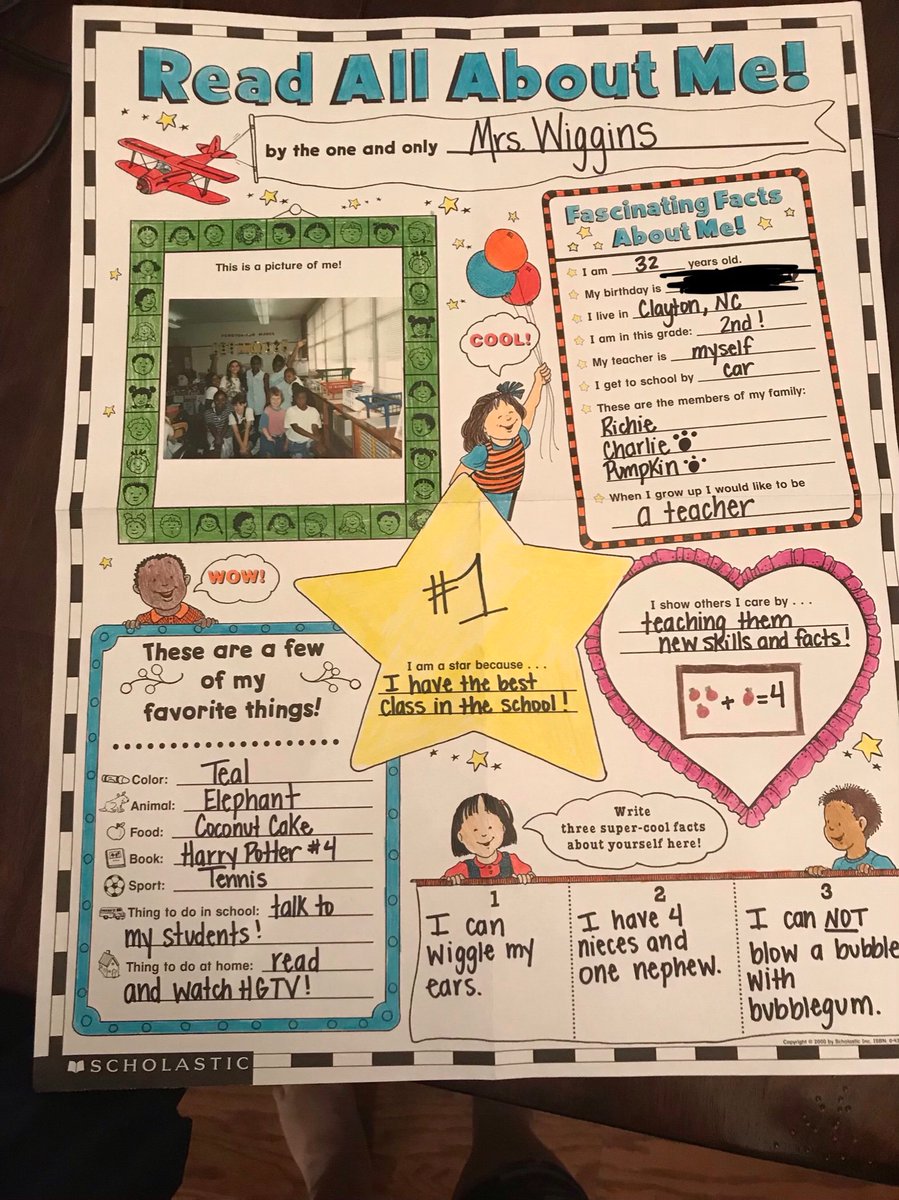 Read All About Me!
by the one and only Mrs. Wiggins
This is a picture of me!
COOL!
Fascinating Facts
About Me!
I am 32 years old.
My birthday is
I live in Clayton, NC
I am in this grade: 2nd!
My teacher is myself
I get to school by car
These are the members of my family:
Richie
Charlie
Pumpkin
When I grow up I would like to be
a teacher
WOW!
#1
I am a star because . . .
I have the best
class in the school!
I show others I care by . . .
teaching them
new skills and facts!
+ =4
These are a few
of my
favorite things!
Color: Teal
Animal: Elephant
Food: Coconut Cake
Book: Harry Potter #4
Sport: Tennis
Thing to do in school: talk to
my students!
Thing to do at home: read
and watch HGTV!
Write
three super-cool facts
about yourself here!
1
I can
wiggle my
ears.
2
I have 4
nieces and
one nephew.
3
I can NOT
blow a bubble
with
bubblegum.
SCHOLASTIC
Copyright © 2000 by Scholastic Inc. ISBN